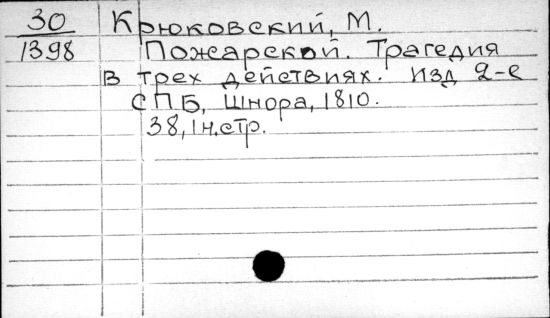 30 Крюковский, М.
1398 Пожарской. Трагедия
в трех действиях. Изд 2-е
СПБ, Шнора, 1810.
38, 1 н.стр.